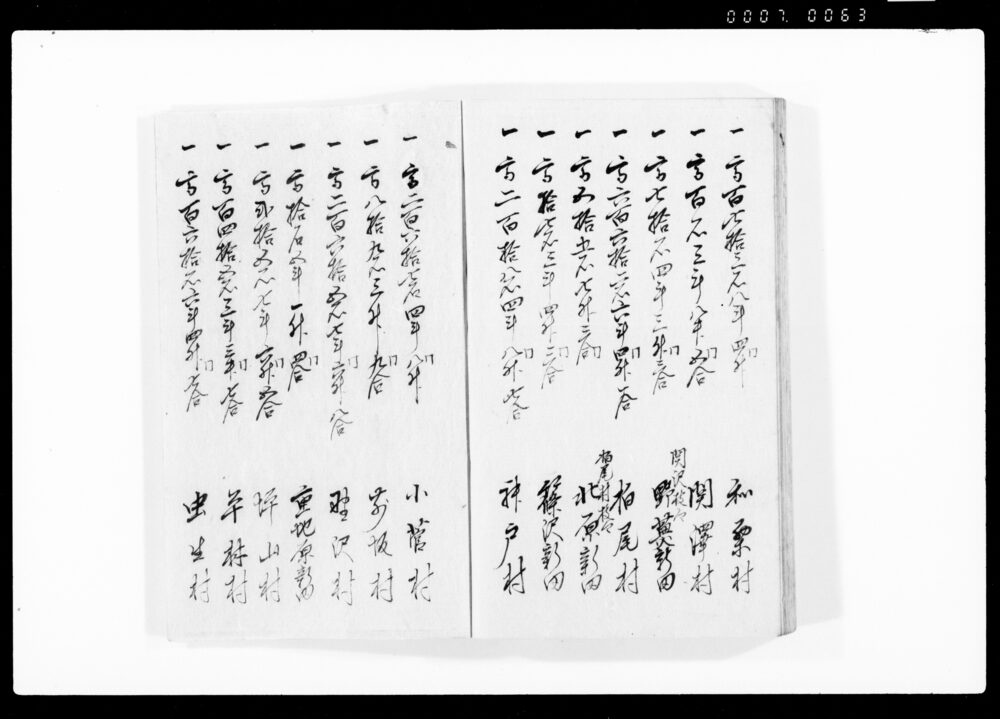 0007. 0063
一 高百七拾二石八斗四升 和栗村
一 高百石三斗八升五合 関澤村
関沢村枝郷
一 高七拾石四斗三升 野萓新田
一 高六百六拾石六斗四升 柏尾村
柏尾村枝郷
一 高五拾七升三合 北原新田
一 高拾三斗四升二合 篠沢新田
一 高二百拾九石四斗八升七合 神戸村
一 高二百六拾七石四斗八升 小菅村
一 高八拾九石三升九合 前坂村
一 高二百六拾五石七斗六升八合 野沢村
一 高拾石五斗一升四合 重地原新田
一 高弐拾五石七斗六升五合 坪山村
一 高百四拾五石三斗三升七合 平林村
一 高百六拾石六斗四升七合 虫生村